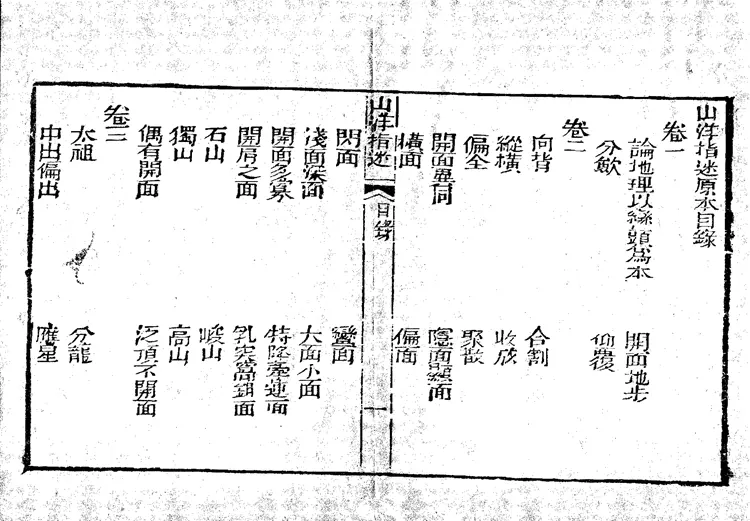 山洋指迷原本目錄
卷一
論地理以巒頭爲本　開面地步
分斂　仰覆
卷二
向背　合割
縱橫　收放
偏全　聚散
開面異同　隱面顯面
橫面　偏面
山洋指迷
目錄
一
閃面　蠻面
淺面深面　大面小面
開面多寡　特降牽連面
開肩之面　乳突窩鉗面
石山　峻山
獨山　高山
偶有開面　泛頂不開面
卷三
太祖　分龍
中出偏出　應星